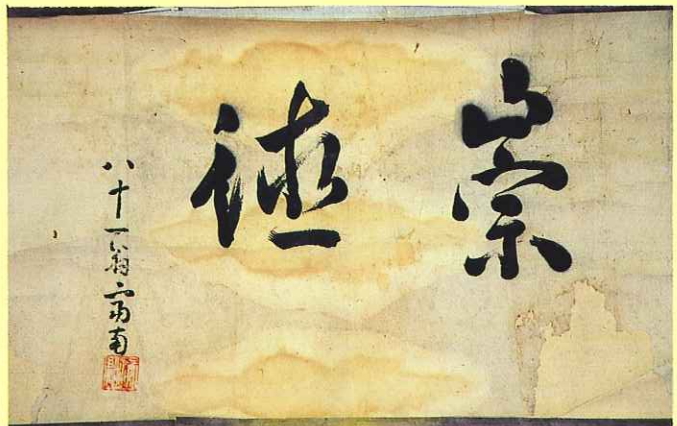 崇
徳
八十一翁甯南